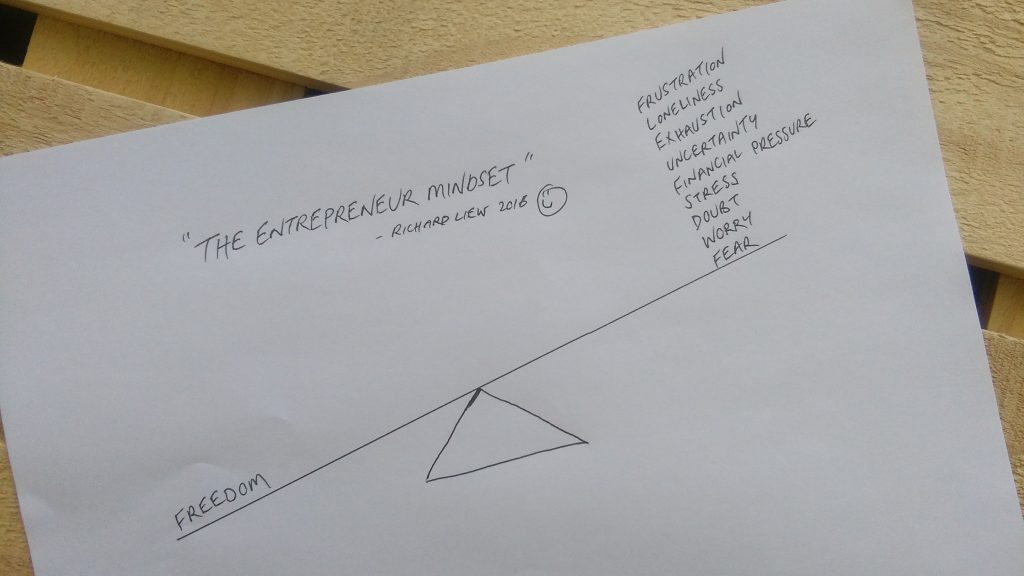 "THE ENTREPRENEUR MINDSET"
- RICHARD LIEW 2018
FRUSTRATION
LONELINESS
EXHAUSTION
UNCERTAINTY
FINANCIAL PRESSURE
STRESS
DOUBT
WORRY
FEAR
FREEDOM